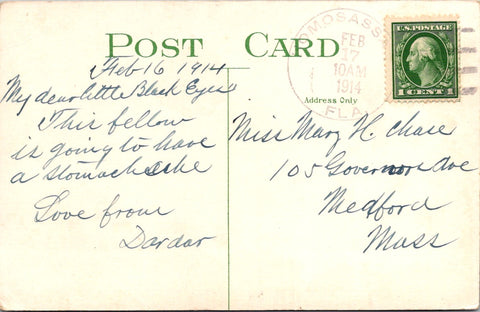 POST CARD
Feb 16 1914
My dear little Black Eyes
This fellow
is going to have
a stomach ache
Love from
Dardar
OMOSASS
FEB
17
10AM
1914
FLA.
U.S. POSTAGE
1 CENT 1
Address Only
Miss Mary H. Chase
105 Governors Ave
Medford
Mass